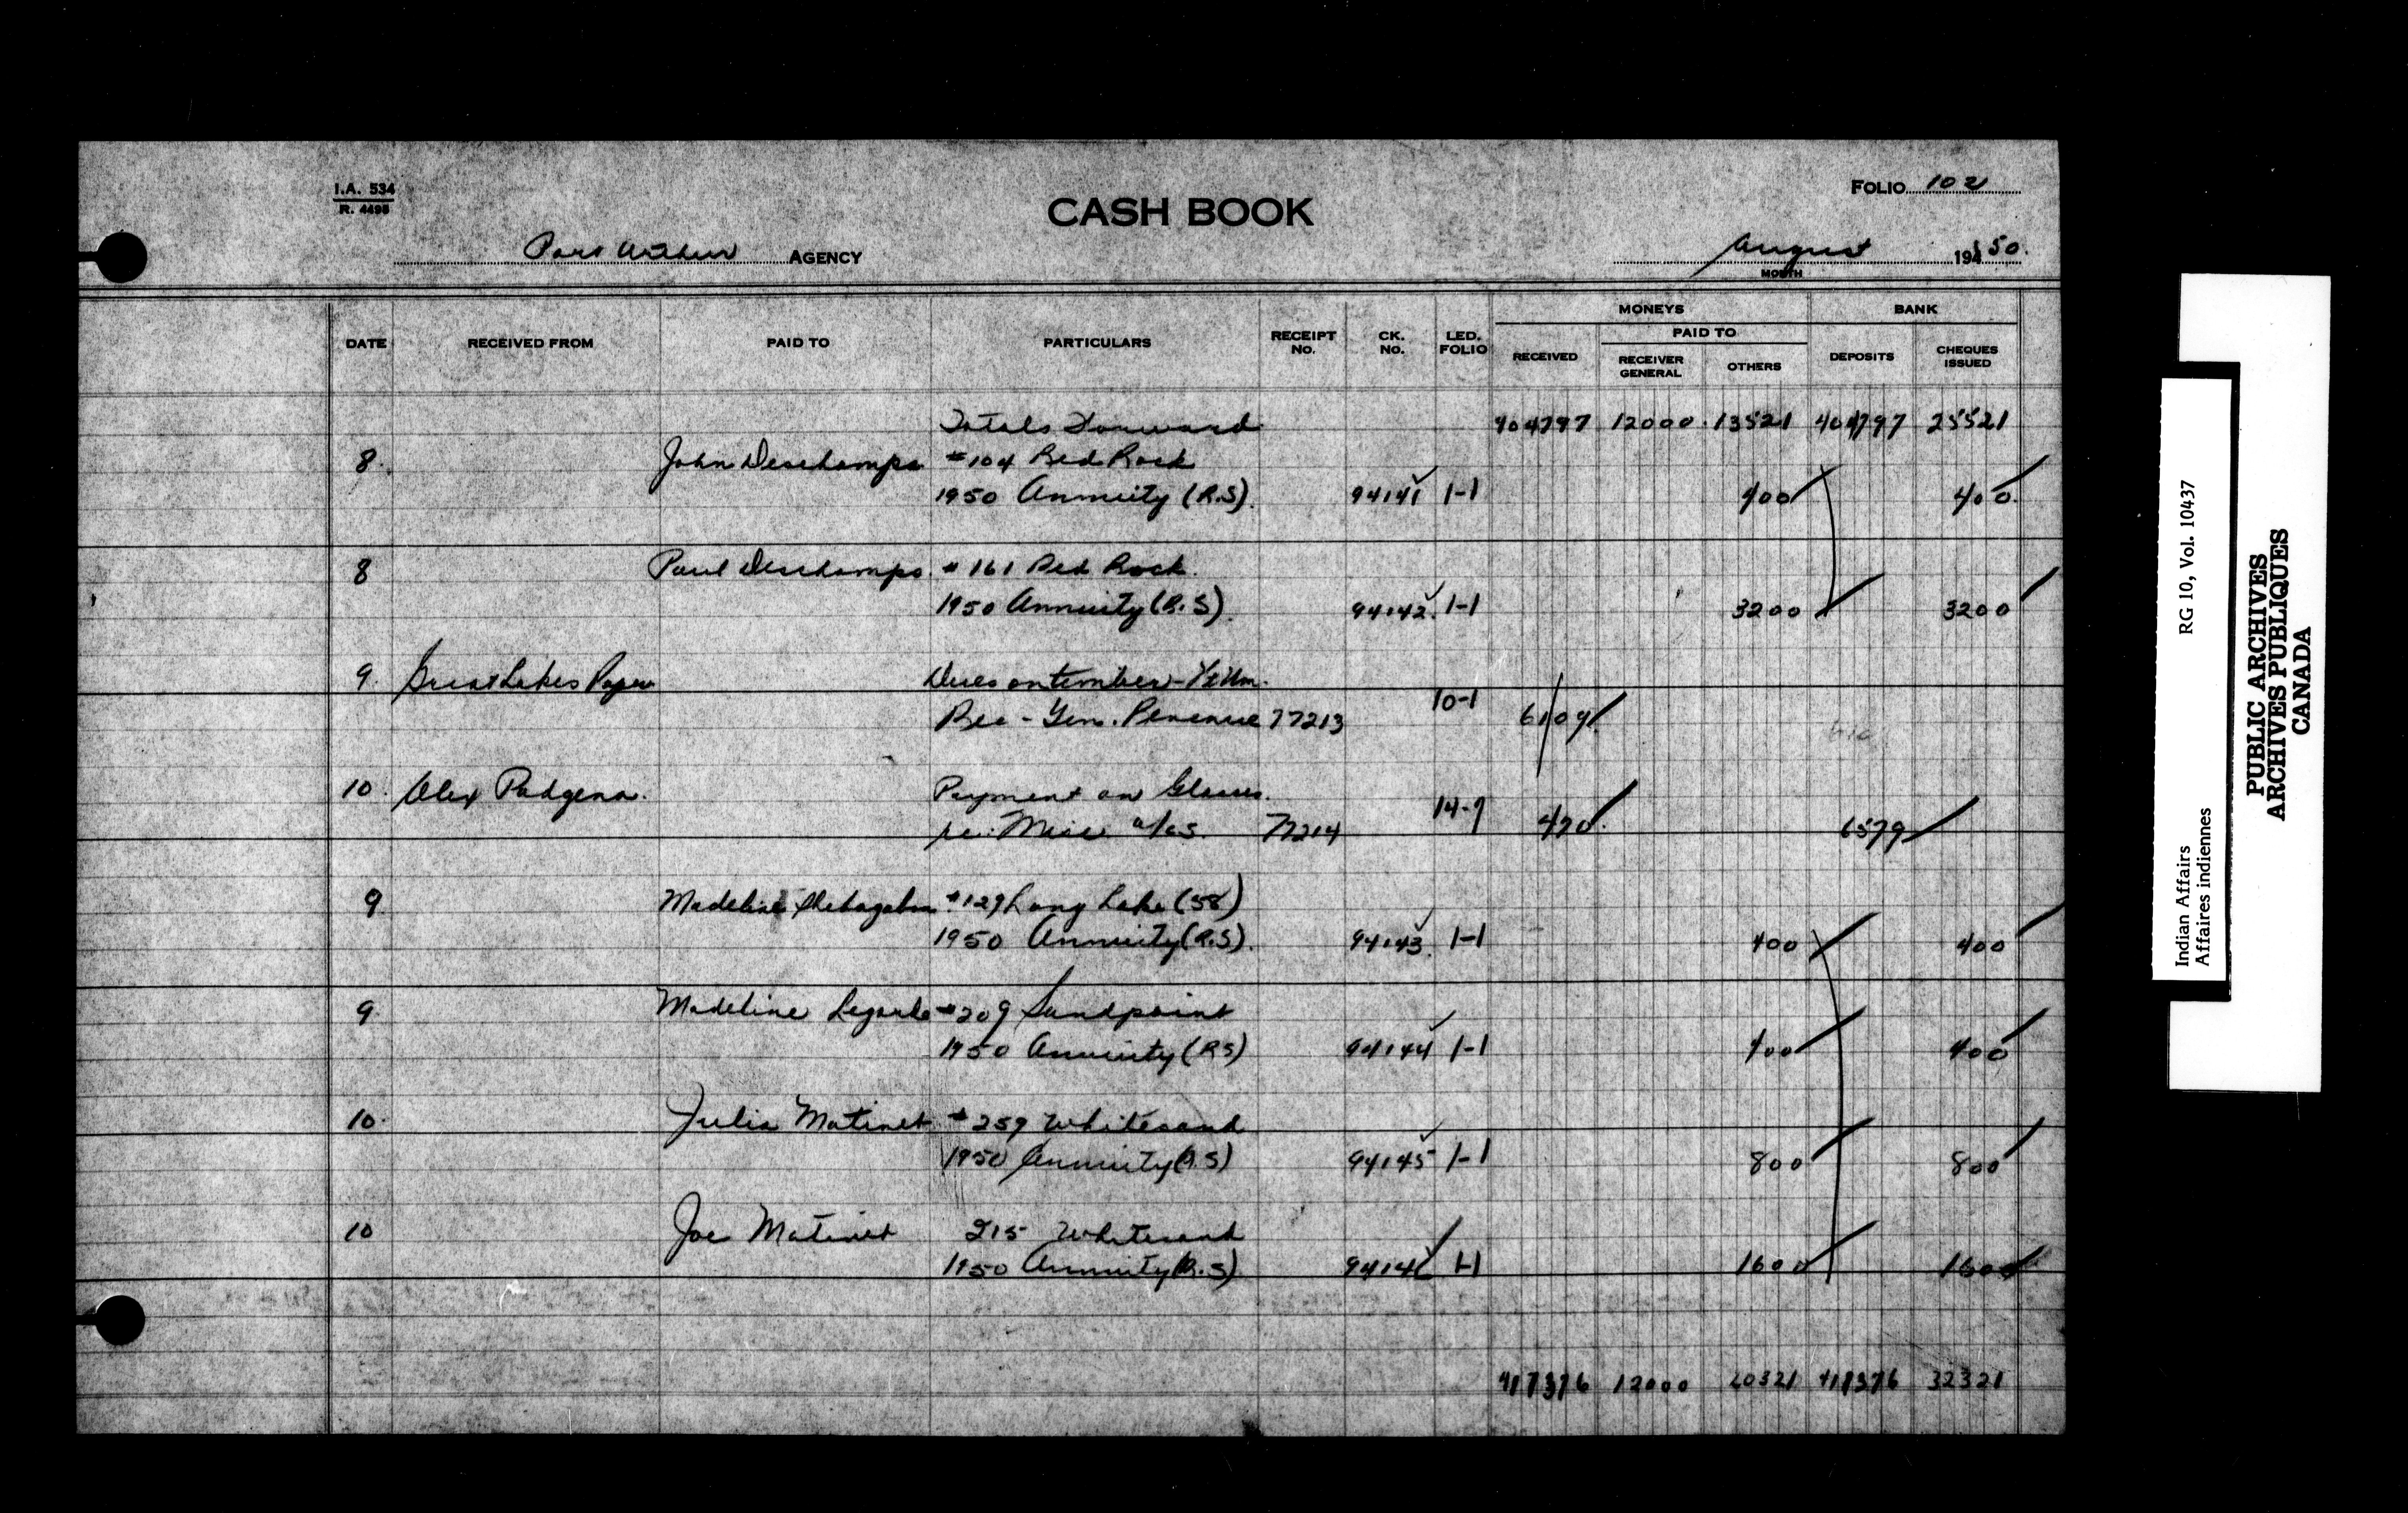 I.A. 534
R. 4495
CASH BOOK
FOLIO 102
Port Arthur AGENCY
August 19450.
MONTH
MONEYS BANK
PAID TO
DATE RECEIVED FROM PAID TO PARTICULARS RECEIPT No. CK. No. LED. FOLIO RECEIVED RECEIVER GENERAL OTHERS DEPOSITS CHEQUES ISSUED
Totals Forward 12000 13521 25521
8. John Deschamps #104 Red Rock
1950 Annuity (R.S). 94141 1-1 400 400
8 Paul Deschamps. #161 Red Rock.
1950 Annuity (R.S). 94142. 1-1 3200 3200
9. Great Lakes Paper Dues on timber
Rec - Gen. Revenue 77213 10-1 6109
10. Alex Payment on Glasses.
re. Misc a/cs. 77214 470. 6579
9 Madeline #129 Long Lake (58)
1950 Annuity (R.S). 94143. 1-1 400 400
9. Madeline Legarde #209 Sandpoint
1950 Annuity (RS) 94144 1-1 400 400
10. Julia Matinet #259 Whitesand
1950 Annuity (R.S) 94145 1-1 800 800
10 Joe Matinet 215 Whitesand
1950 Annuity (R.S) 94146 1-1 1600 1600
417376 12000 20321 32321
Indian Affairs RG 10, Vol. 10437
Affaires indiennes
PUBLIC ARCHIVES
ARCHIVES PUBLIQUES
CANADA